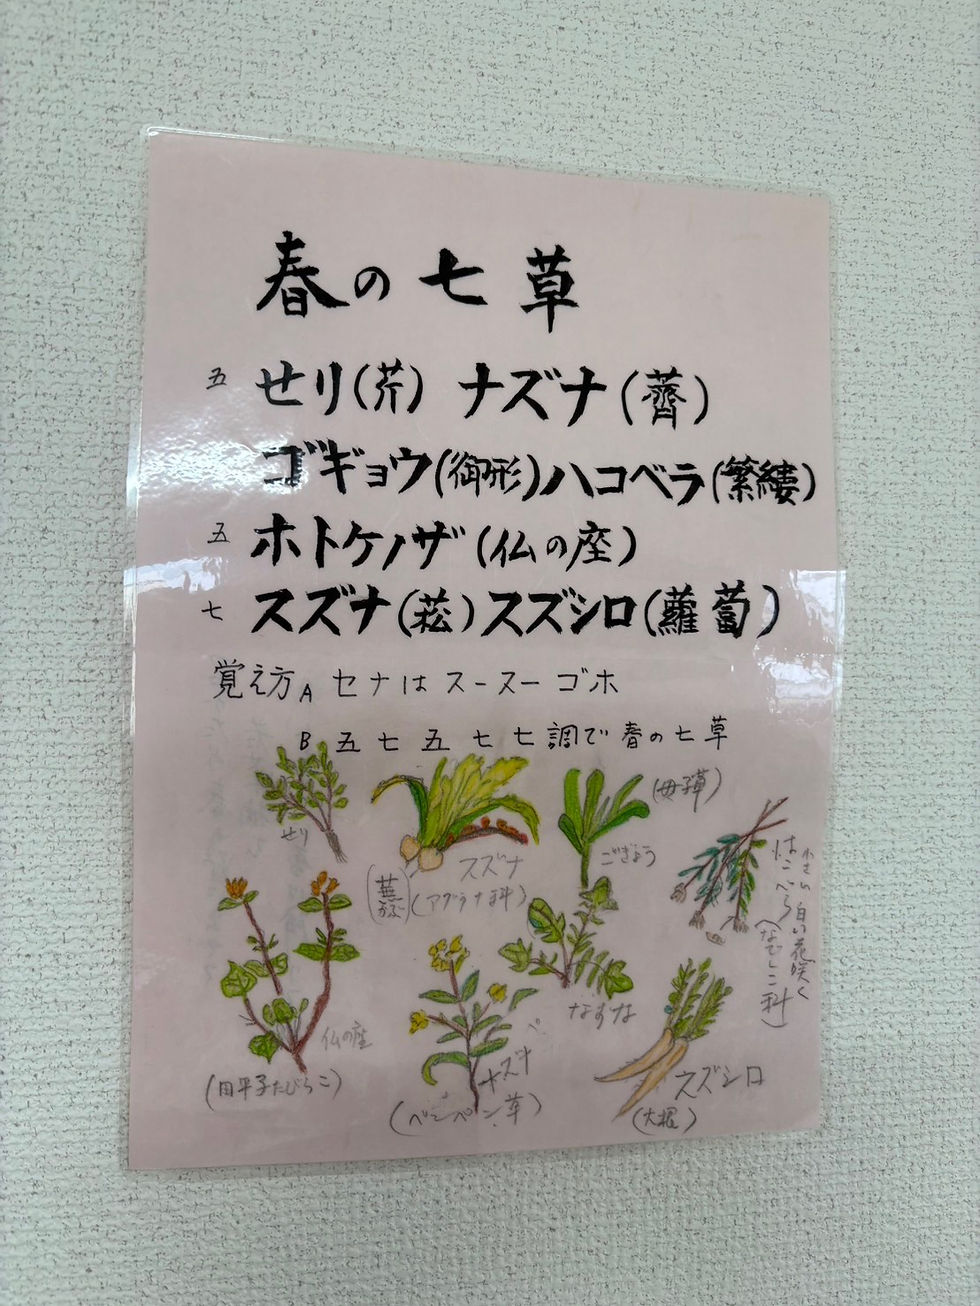 春の七草
五 せり(芹) ナズナ(薺)
ゴギョウ(御形)ハコベラ(繁縷)
五 ホトケノザ(仏の座)
七 スズナ(菘)スズシロ(蘿蔔)
覚え方A セナは スーヌー ゴホ
B 五七五七七調で春の七草
せり
スズナ
(蕪かぶ)
(アブラナ科)
(母子草)
ごぎょう
はこべら(なでしこ科)
小さい白い花咲く
仏の座
(田平子たびらこ)
なずな
ナズナ
(ペンペン草)
スズシロ
(大根)